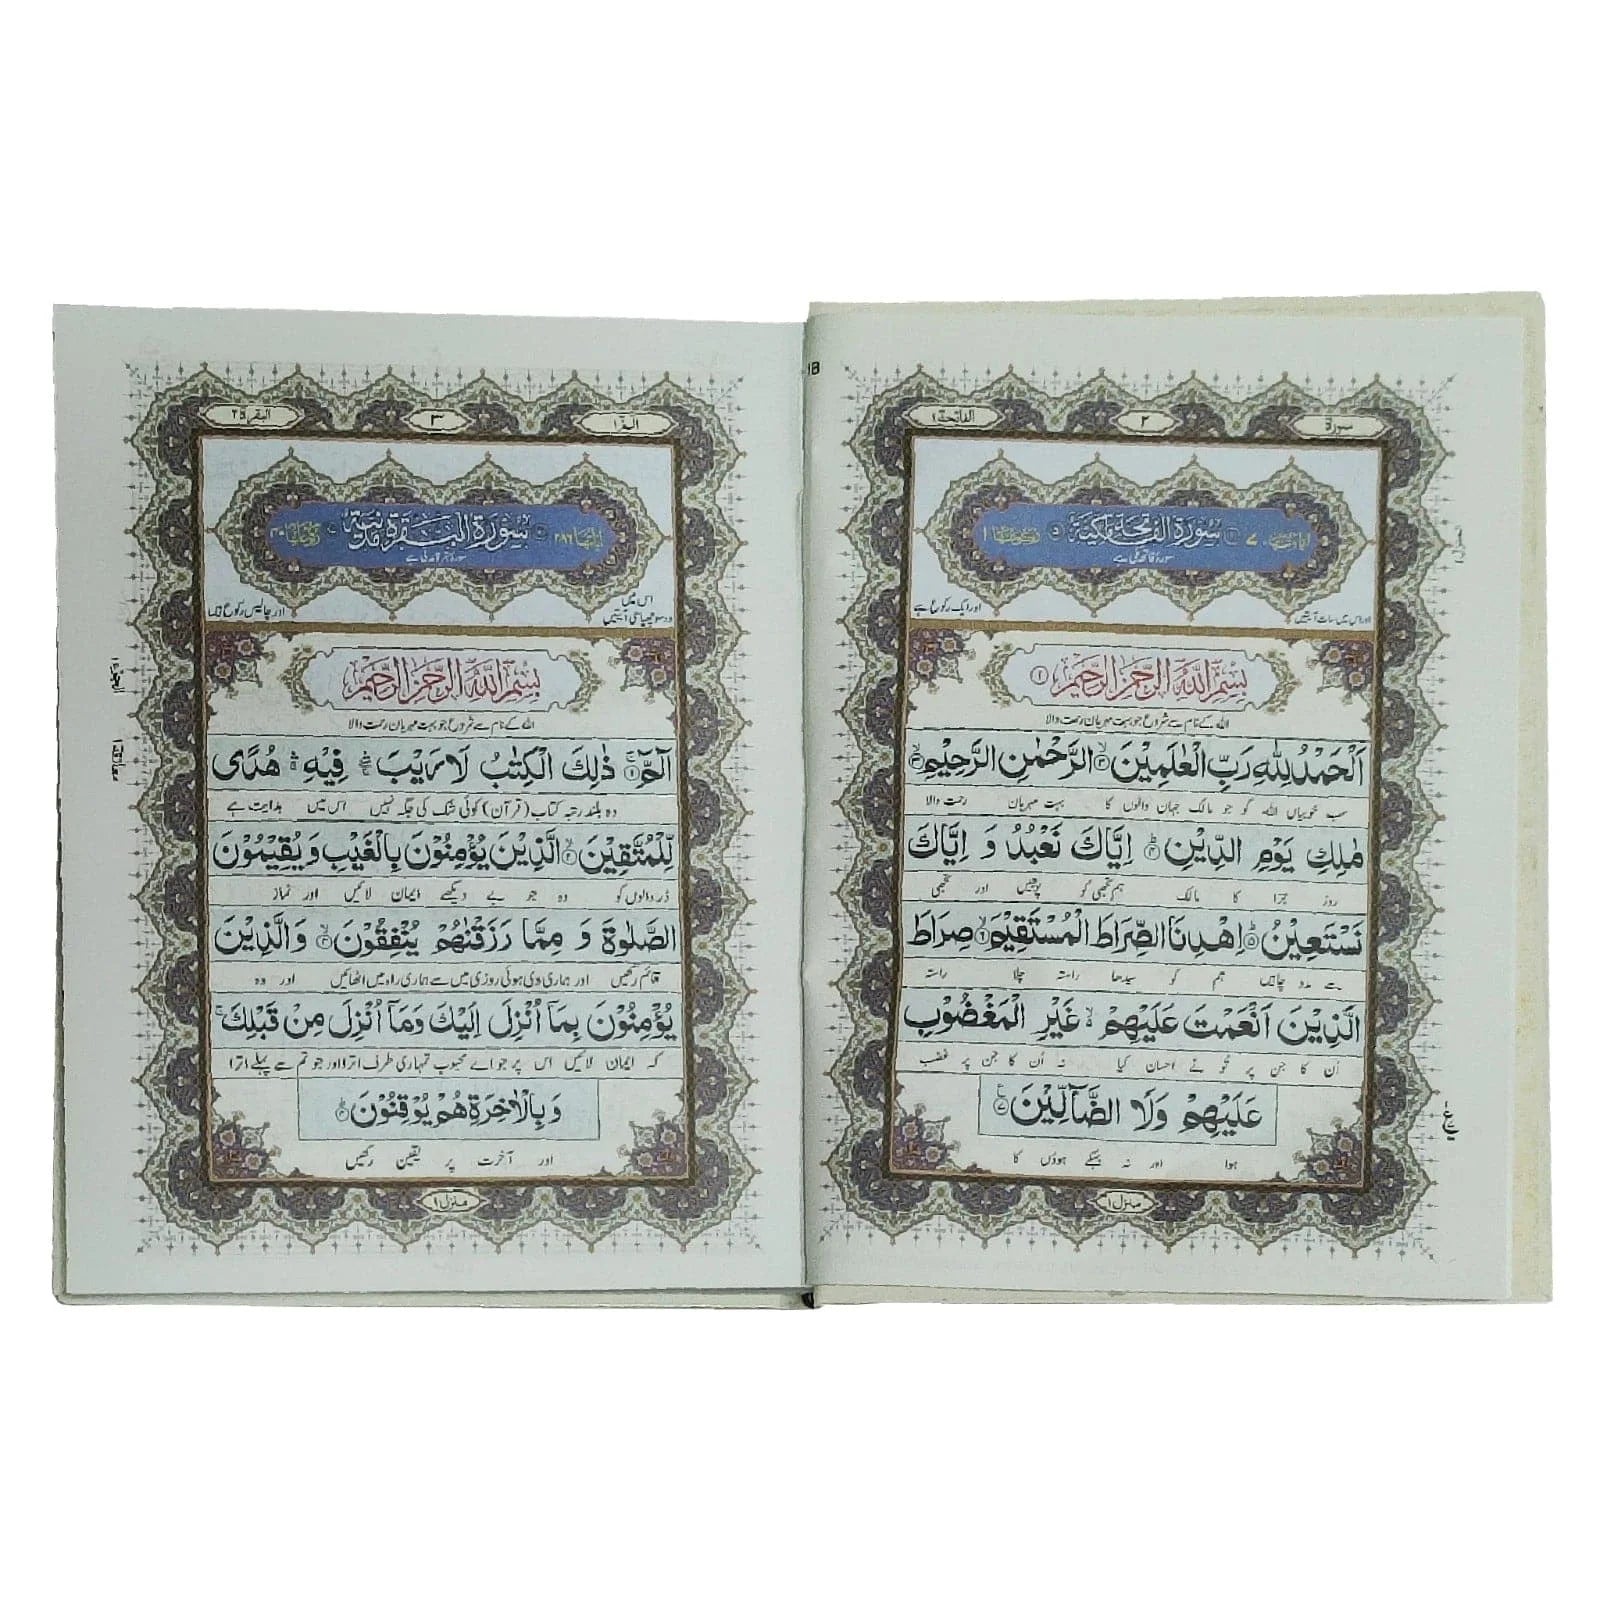 سورة
٢
الفاتحة ١
سُوْرَةُ الْفَاتِحَةِ مَكِّيَّةٌ
سورۂ فاتحہ مکی ہے
اور اس میں سات آیتیں
اور ایک رکوع ہے
بِسْمِ اللّٰهِ الرَّحْمٰنِ الرَّحِيْمِ ١
اللہ کے نام سے شروع جو بہت مہربان رحمت والا
اَلْحَمْدُ لِلّٰهِ رَبِّ الْعٰلَمِيْنَ ۙ‏﴿۲﴾ الرَّحْمٰنِ الرَّحِيْمِ ۙ‏﴿۳﴾
سب خوبیاں اللہ کو جو مالک جہان والوں کا بہت مہربان رحمت والا
مٰلِكِ يَوْمِ الدِّيْنِ ؕ‏﴿۴﴾ اِيَّاكَ نَعْبُدُ وَ اِيَّاكَ
روز جزا کا مالک ہم تجھی کو پوجیں اور تجھی
نَسْتَعِيْنُ ؕ‏﴿۵﴾ اِهْدِنَا الصِّرَاطَ الْمُسْتَقِيْمَ ۙ‏﴿۶﴾ صِرَاطَ
سے مدد چاہیں ہم کو سیدھا راستہ چلا راستہ
الَّذِيْنَ اَنْعَمْتَ عَلَيْهِمْ ۙ غَيْرِ الْمَغْضُوْبِ
اُن کا جن پر تو نے احسان کیا نہ اُن کا جن پر غضب
عَلَيْهِمْ وَلَا الضَّآلِّيْنَ ﴿۷﴾
ہوا اور نہ بہکے ہوؤں کا
منزل ١
الٓمّٓ ١
٣
البقرة ٢
سُوْرَةُ الْبَقَرَةِ مَدَنِيَّةٌ
اٰيَاتُهَا ٢٨٦
سورۂ بقرہ مدنی ہے
اس میں
دو سو چھیاسی آیتیں
اور چالیس رکوع ہیں
بِسْمِ اللّٰهِ الرَّحْمٰنِ الرَّحِيْمِ
اللہ کے نام سے شروع جو بہت مہربان رحمت والا
الٓمّٓ ۚ‏﴿۱﴾ ذٰلِكَ الْكِتٰبُ لَا رَيْبَ ۛۖ فِيْهِ ۛۚ هُدًى
وہ بلند رتبہ کتاب (قرآن) کوئی شک کی جگہ نہیں اس میں ہدایت ہے
لِّلْمُتَّقِيْنَ ۙ‏﴿۲﴾ الَّذِيْنَ يُؤْمِنُوْنَ بِالْغَيْبِ وَيُقِيْمُوْنَ
ڈر والوں کو وہ جو بے دیکھے ایمان لائیں اور نماز
الصَّلٰوةَ وَ مِمَّا رَزَقْنٰهُمْ يُنْفِقُوْنَ ۙ‏﴿۳﴾ وَالَّذِيْنَ
قائم رکھیں اور ہماری دی ہوئی روزی میں سے ہماری راہ میں اٹھائیں اور وہ
يُؤْمِنُوْنَ بِمَآ اُنْزِلَ اِلَيْكَ وَمَآ اُنْزِلَ مِنْ قَبْلِكَ ۚ
کہ ایمان لائیں اس پر جو اے محبوب تمہاری طرف اترا اور جو تم سے پہلے اترا
وَبِالْاٰخِرَةِ هُمْ يُوْقِنُوْنَ ؕ‏﴿۴﴾
اور آخرت پر یقین رکھیں
منزل ١